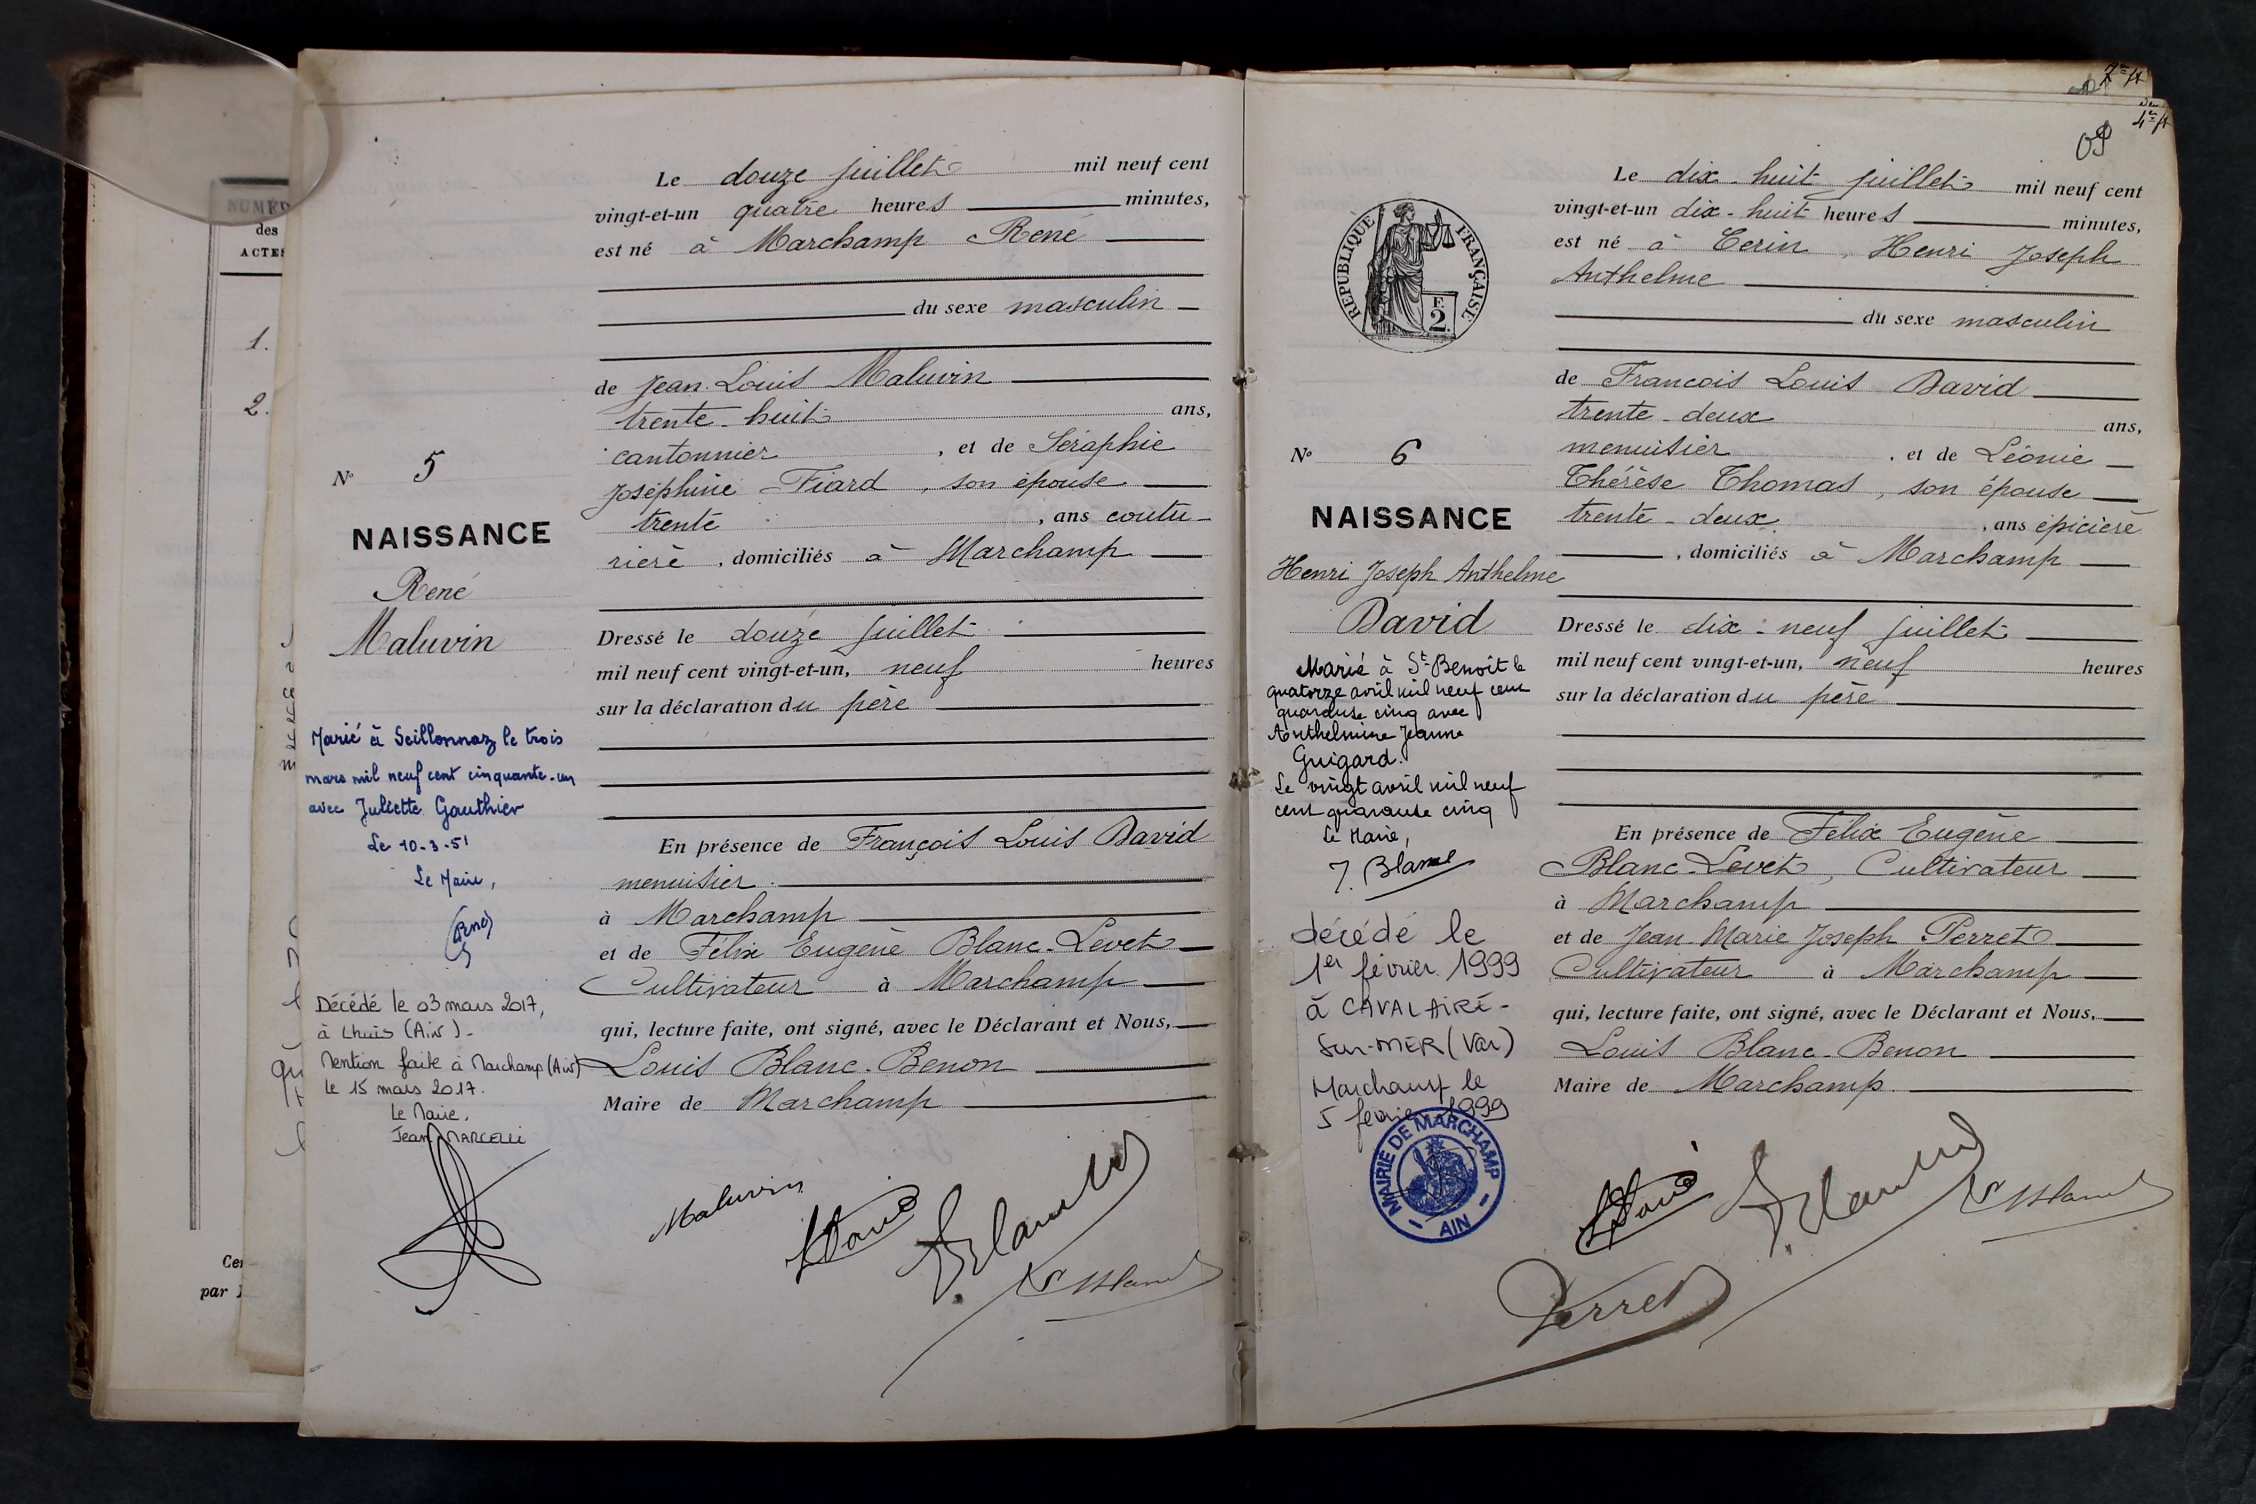 NUMÉR
des
ACTES
1.
2.
Cer
par
Le douze juillet mil neuf cent
vingt-et-un quatre heures minutes,
est né à Marchamp René
du sexe masculin
de Jean Louis Maluvin
trente-huit ans,
cantonnier, et de Séraphie
Joséphine Fiard, son épouse
trente, ans coutu-
rière, domiciliés à Marchamp
No 5
NAISSANCE
René
Maluvin
Dressé le douze juillet
mil neuf cent vingt-et-un, neuf heures
sur la déclaration du père
Marié à Seillonnaz le trois
mars mil neuf cent cinquante-un
avec Juliette Gauthier
Le 10-3-51
Le Maire,
En présence de François Louis David
menuisier.
à Marchamp
et de Félix Eugène Blanc-Levet
Cultivateur à Marchamp
qui, lecture faite, ont signé, avec le Déclarant et Nous,
Louis Blanc-Benon
Maire de Marchamp
Décédé le 03 mars 2017,
à Lhuis (Ain)-
Mention faite à Marchamp (Ain)
le 15 mars 2017.
Le Maire,
Jean MARCELLI
Maluvin
4e ft
09
RÉPUBLIQUE FRANÇAISE
F.
2.
Le dix-huit juillet mil neuf cent
vingt-et-un dix-huit heures minutes,
est né à Cerin, Henri Joseph
Anthelme
du sexe masculin
de François Louis David
trente-deux ans,
menuisier, et de Léonie
Thérèse Thomas, son épouse
trente-deux, ans épicière
, domiciliés à Marchamp
No 6
NAISSANCE
Henri Joseph Anthelme
David
Dressé le dix-neuf juillet
mil neuf cent vingt-et-un, neuf heures
sur la déclaration du père
Marié à St-Benoit le
quatorze avril mil neuf cent
quarante cinq avec
Anthelmine Jeanne
Guigard.
Le vingt avril mil neuf
cent quarante cinq
Le Maire,
J. Blanc
En présence de Félix Eugène
Blanc-Levet, Cultivateur
à Marchamp
et de Jean Marie Joseph Perret
Cultivateur à Marchamp
qui, lecture faite, ont signé, avec le Déclarant et Nous,
Louis Blanc-Benon
Maire de Marchamp
décédé le
1er février 1999
à CAVALAIRE-
Sur-MER (Var)
Marchamp le
5 février 1999
MAIRIE DE MARCHAMP
- AIN -
Perret